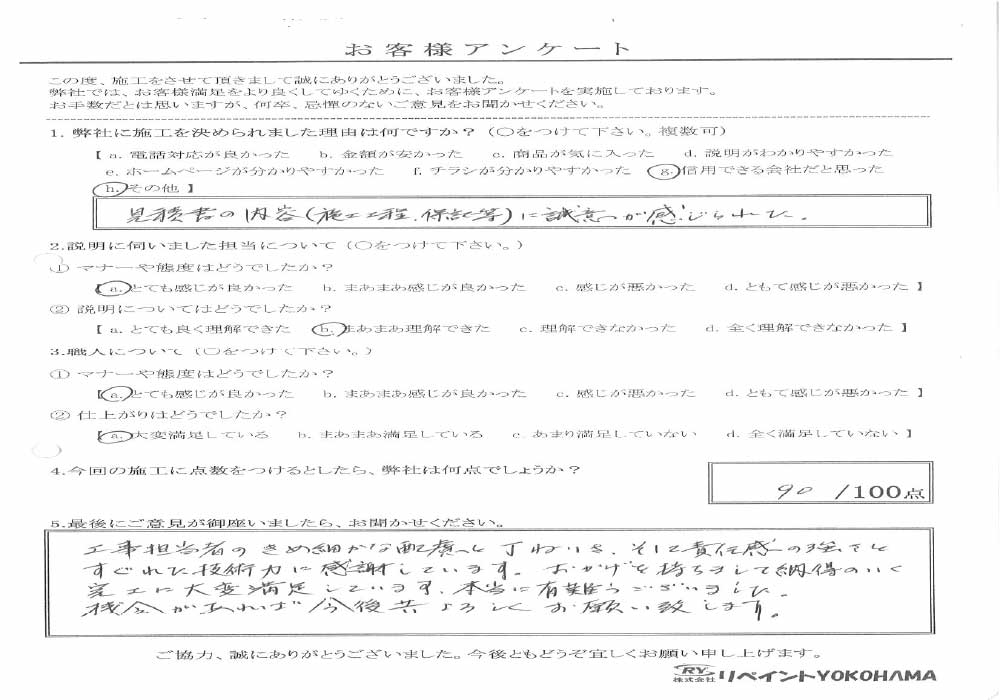 お客様アンケート
この度、施工をさせて頂きまして誠にありがとうございました。
弊社では、お客様満足をより良くしてゆくために、お客様アンケートを実施しております。
お手数だとは思いますが、何卒、忌憚のないご意見をお聞かせください。
1. 弊社に施工を決められました理由は何ですか？（〇をつけて下さい。複数可）
【 a. 電話対応が良かった b. 金額が安かった c. 商品が気に入った d. 説明がわかりやすかった
e. ホームページが分かりやすかった f. チラシが分かりやすかった g. 信用できる会社だと思った
h. その他 】
見積書の内容(施工工程、保証等)に誠意が感じられた。
2.説明に伺いました担当について（〇をつけて下さい。）
① マナーや態度はどうでしたか？
【 a. とても感じが良かった b. まあまあ感じが良かった c. 感じが悪かった d. ともて感じが悪かった 】
② 説明についてはどうでしたか？
【 a. とても良く理解できた b. まあまあ理解できた c. 理解できなかった d. 全く理解できなかった 】
3.職人について（〇をつけて下さい。）
① マナーや態度はどうでしたか？
【 a. とても感じが良かった b. まあまあ感じが良かった c. 感じが悪かった d. ともて感じが悪かった 】
② 仕上がりはどうでしたか？
【 a. 大変満足している b. まあまあ満足している c. あまり満足していない d. 全く満足していない 】
4.今回の施工に点数をつけるとしたら、弊社は何点でしょうか？
90 /100点
5.最後にご意見が御座いましたら、お聞かせください。
工事担当者のきめ細かな配慮と丁ねいさ、そして責任感の強さと
すぐれた技術力に感謝しています。おかげを持ちまして納得のいく
完工に大変満足しています。本当に有難うございました。
機会があれば今後共よろしくお願い致します。
ご協力、誠にありがとうございました。今後ともどうぞ宜しくお願い申し上げます。
RY 株式会社 リペイントYOKOHAMA